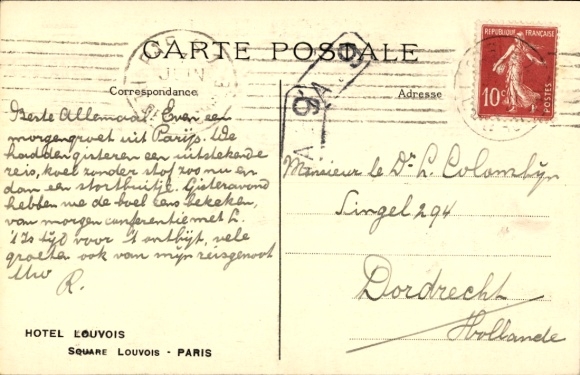 CARTE POSTALE
Correspondance
Adresse
REPUBLIQUE FRANÇAISE
10c
POSTES
Beste Allemaal. Even een
morgengroet uit Parijs. We
hadden gisteren een uitstekende
reis, koel zonder stof zoo nu en
dan een stortbuitje. Gisteravond
hebben we de boel eens bekeken,
van morgen conferentie met L.
't Is tijd voor 't ontbijt, vele
groeten ook van mijn reisgenoot
Uw
R.
Monsieur le Dr. L. Colombijn
Singel 294
Dordrecht
Hollande
HOTEL LOUVOIS
SQUARE LOUVOIS - PARIS